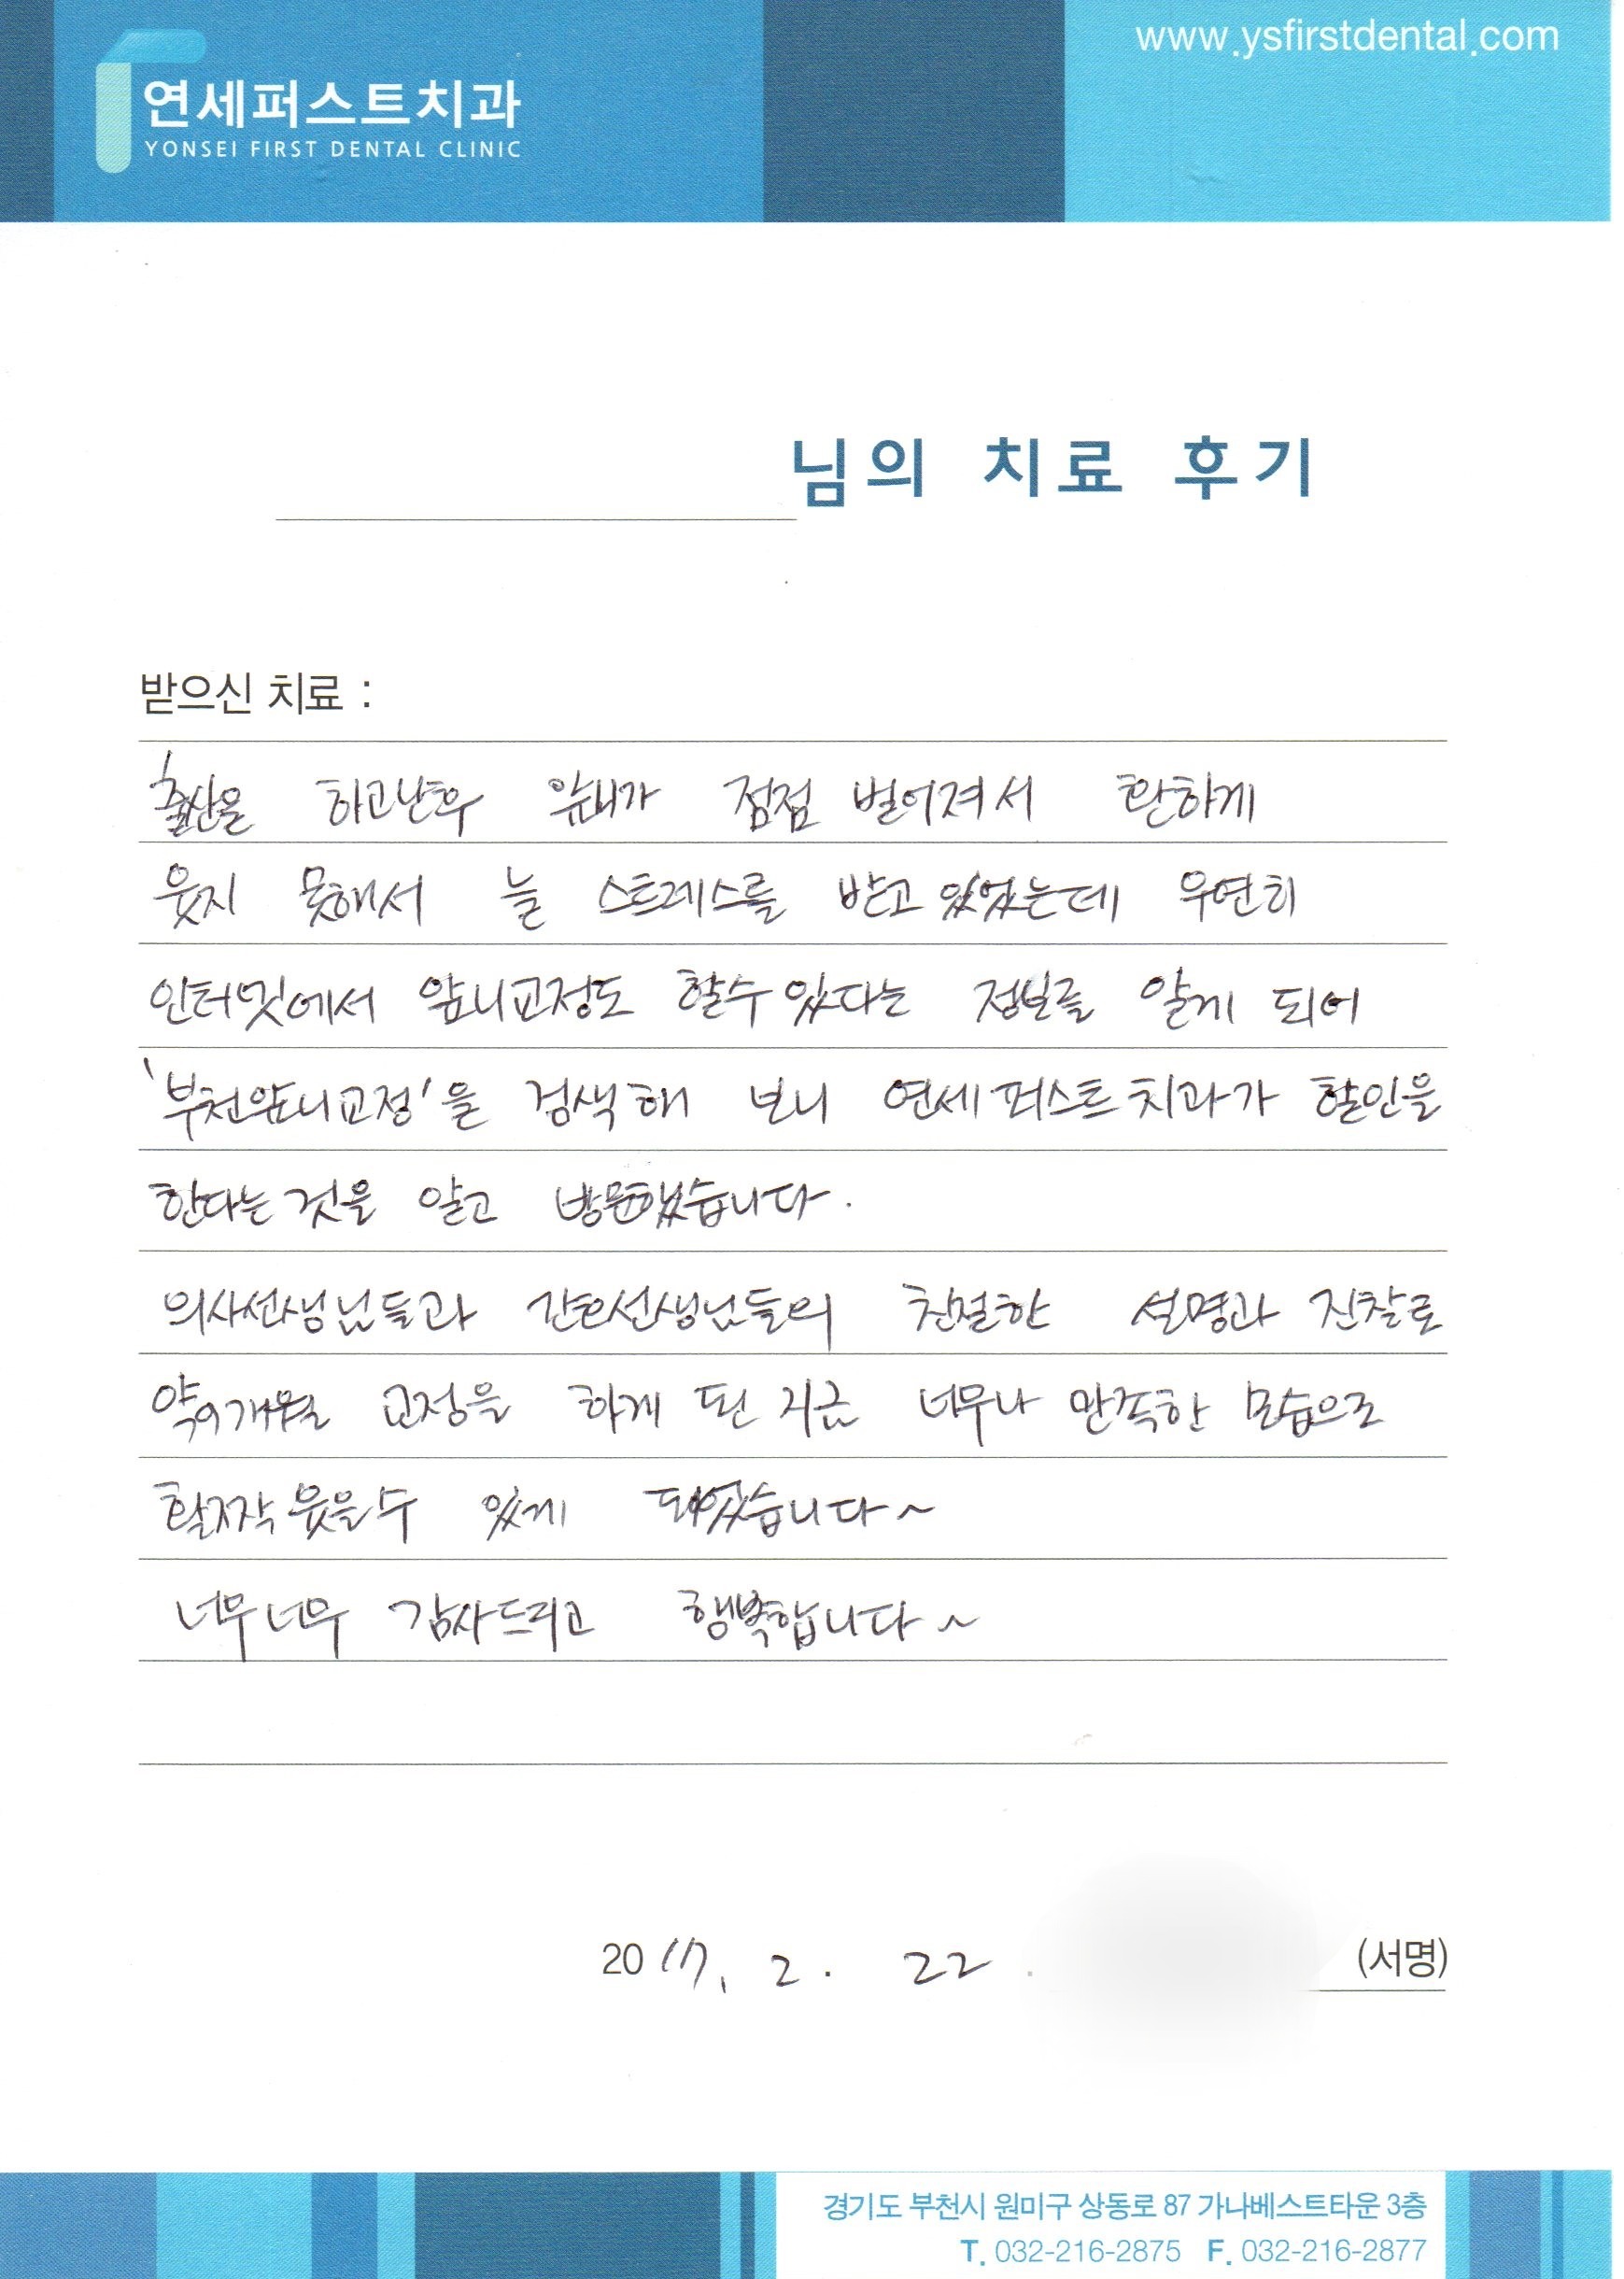 www.ysfirstdental.com
연세퍼스트치과
YONSEI FIRST DENTAL CLINIC
님의 치료 후기
받으신 치료 :
출산을 하고난후 앞니가 점점 벌어져서 환하게
웃지 못해서 늘 스트레스를 받고 있었는데 우연히
인터넷에서 앞니교정도 할수 있다는 정보를 알게 되어
'부천앞니교정'을 검색해 보니 연세퍼스트치과가 할인을
한다는것을 알고 방문했습니다.
의사선생님들과 간호선생님들의 친절한 설명과 진찰로
약 9개월 교정을 하게 된 지금 너무나 만족한 모습으로
활짝 웃을수 있게 되었습니다~
너무너무 감사드리고 행복합니다~
2017. 2. 22. (서명)
경기도 부천시 원미구 상동로 87 가나베스트타운 3층
T. 032-216-2875 F. 032-216-2877